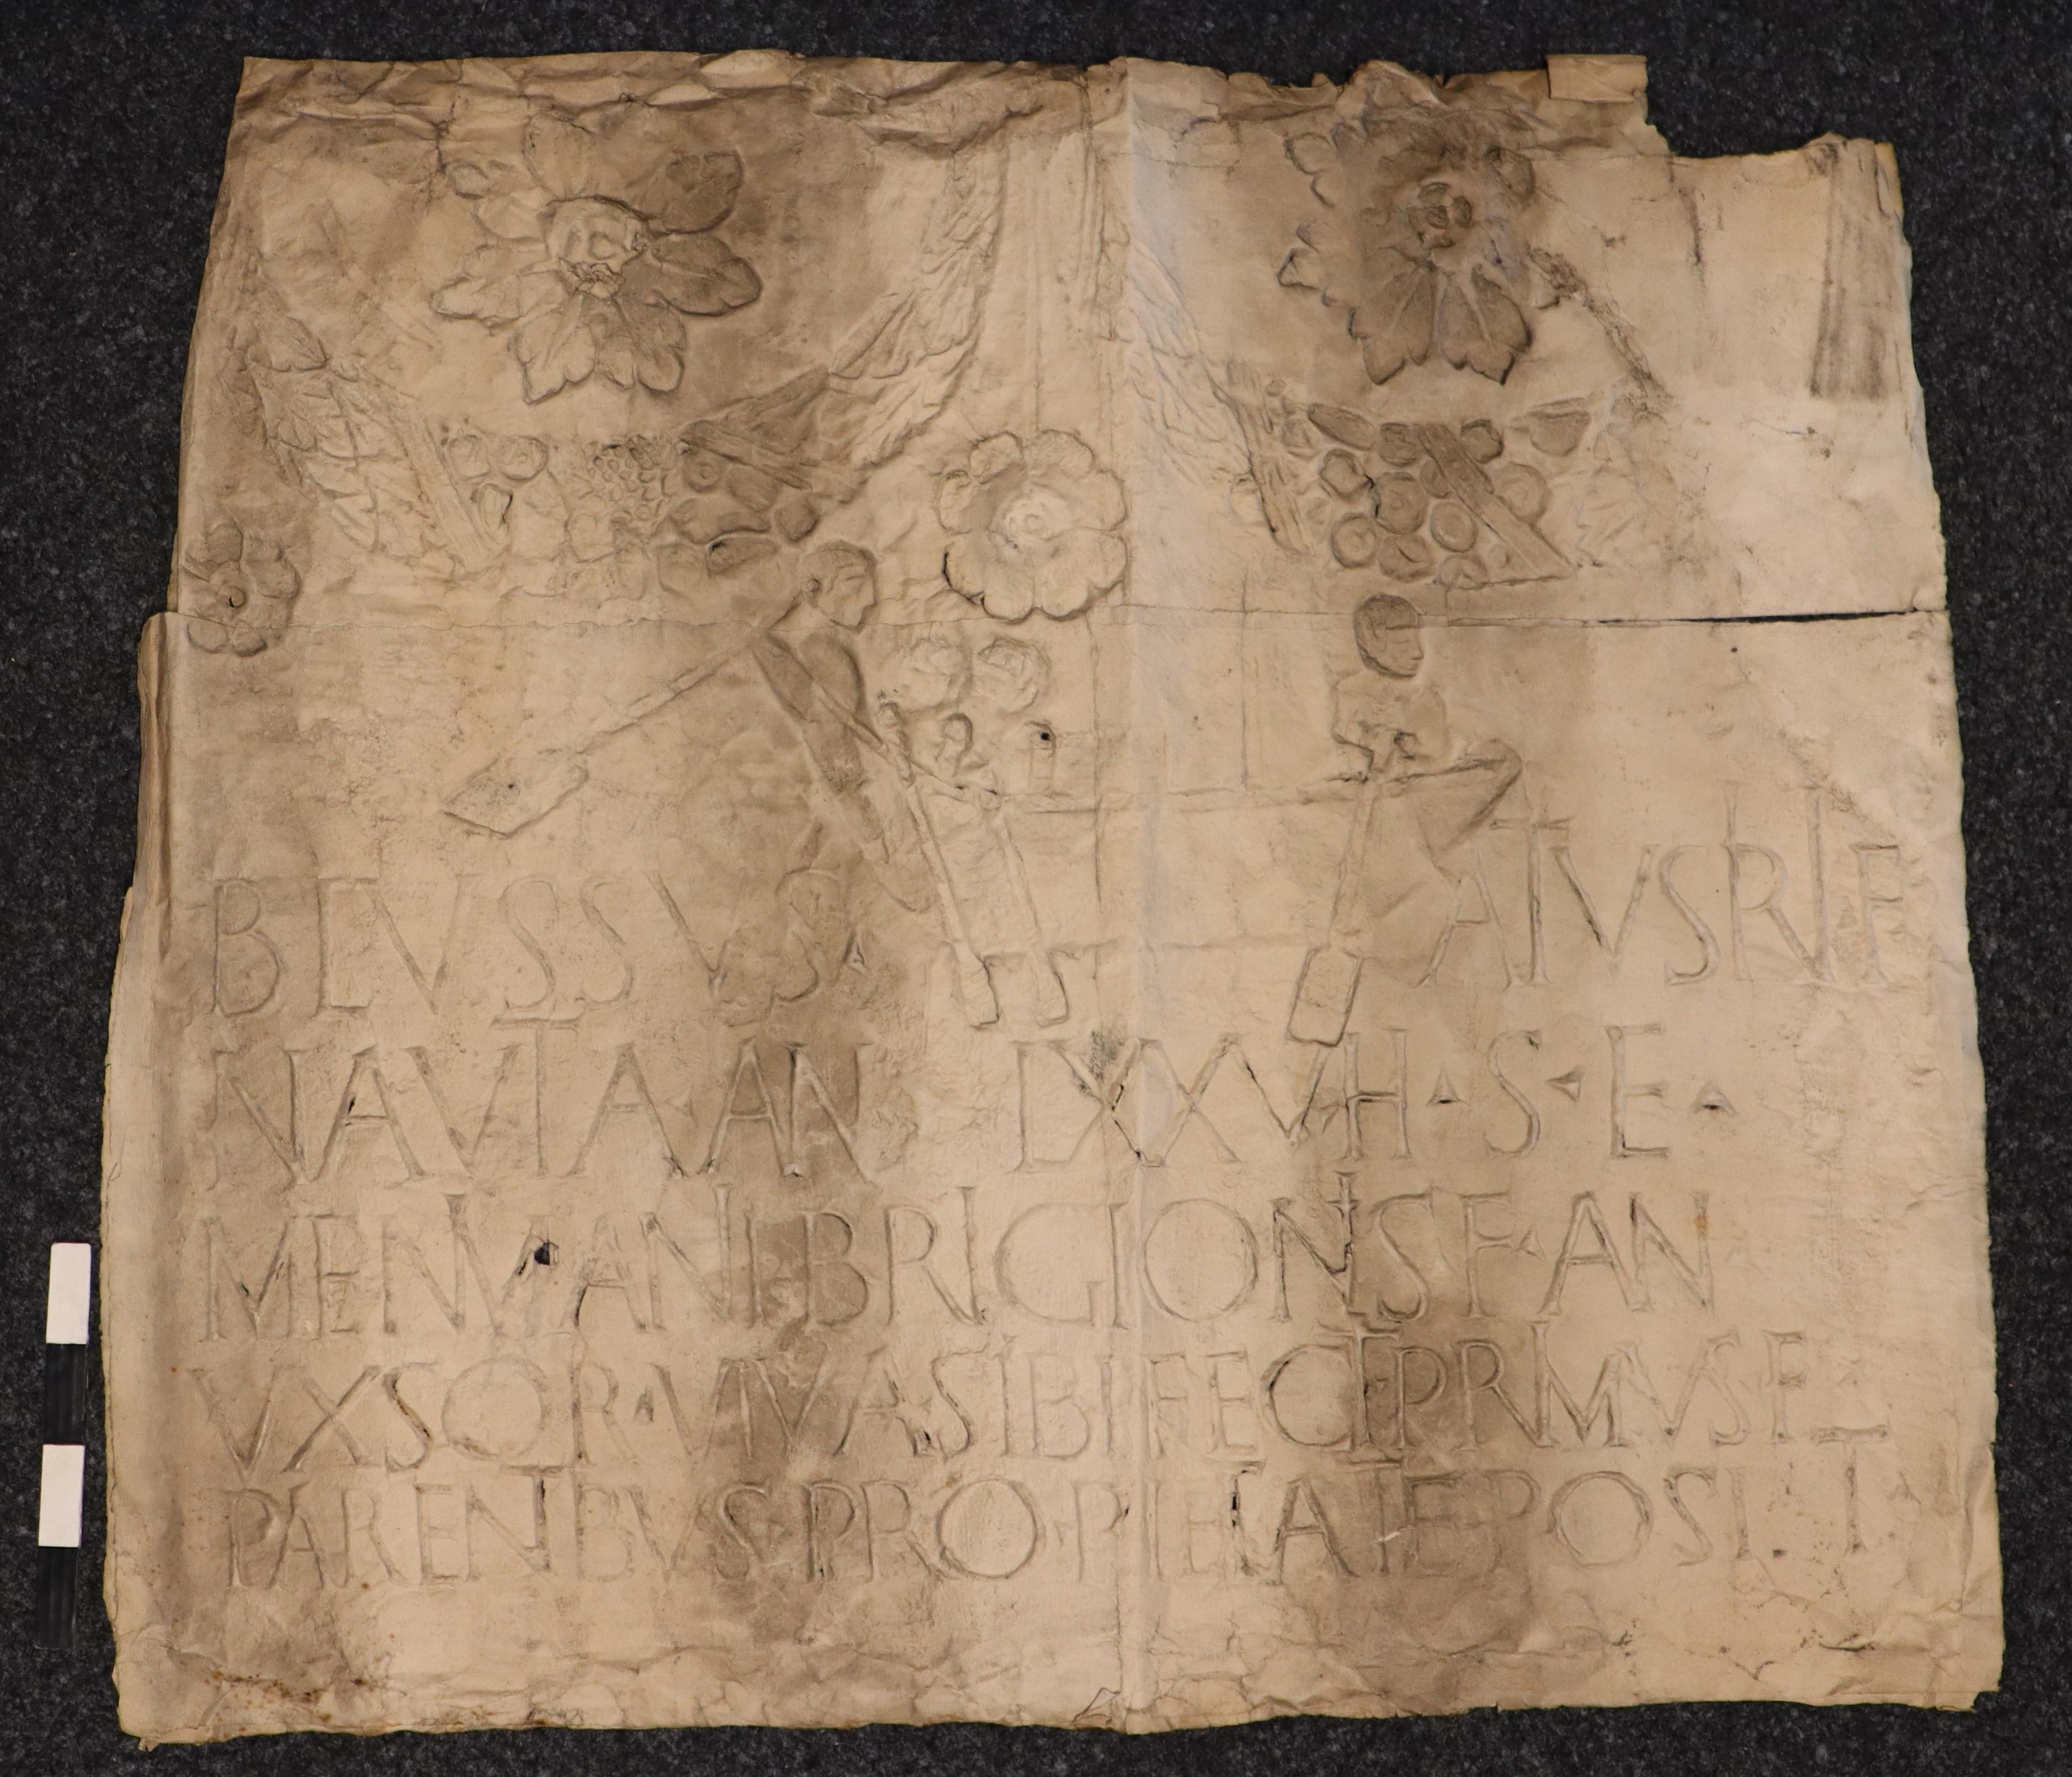 BLVSSVS · ATVSIRI F
NAVTA AN LXXV H · S · E ·
MENIMANI · BRIGIONIS F · AN
VXSOR · VIVA SIBI FECIT · PRIMVS F ·
PARENTIBVS · PRO · PIETATE POSIT